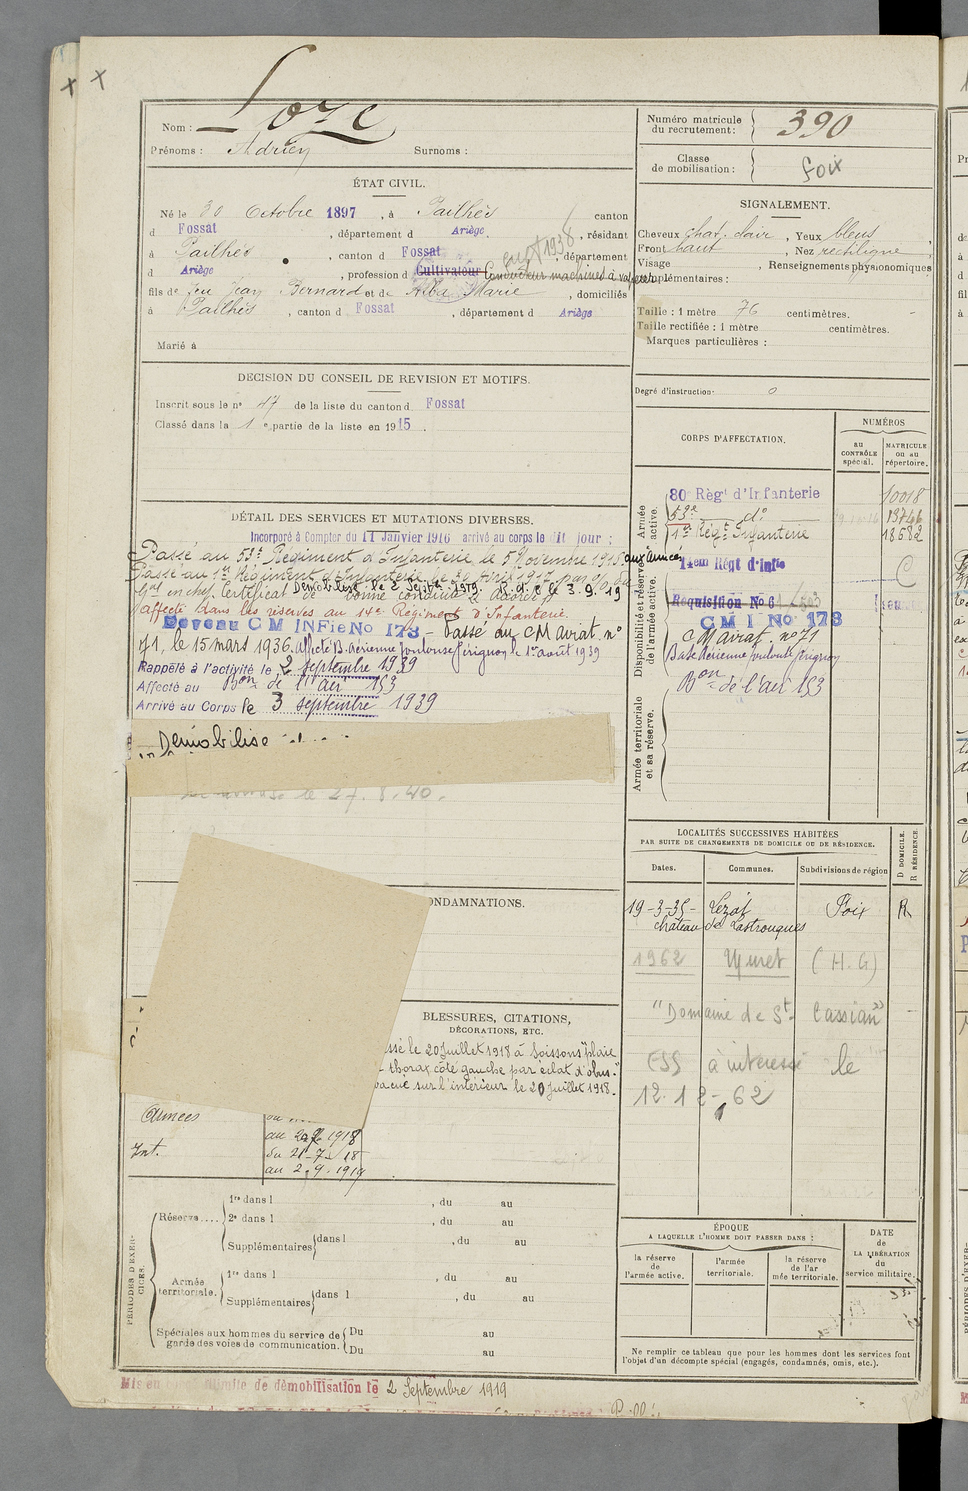 Nom : Loze
Prénoms : Adrien Surnoms :
ÉTAT CIVIL.
Né le 30 Octobre 1897, à Pailhès canton
d Fossat, département d Ariège, résidant
à Pailhès, canton d Fossat département
d Ariège, profession d Cultivateur Conducteur machines à vapeur
fils de feu Jean Bernard et de Alba Marie, domiciliés
à Pailhès, canton d Fossat, département d Ariège
Marié à
DÉCISION DU CONSEIL DE REVISION ET MOTIFS.
Inscrit sous le n° 47 de la liste du canton d Fossat
Classé dans la 1e partie de la liste en 1915.
DÉTAIL DES SERVICES ET MUTATIONS DIVERSES.
Incorporé à Compter du 11 Janvier 1916 arrivé au corps le dit jour ;
Passé au 53e Régiment d'Infanterie le 5 Novembre 1916 aux armées
Passé au 1er Régiment d'Infanterie le 30 Avril 1917
Démobilisé le 2 Septbre 1919
Certificat de bonne conduite accordé
affecté dans les réserves au 14e Régiment d'Infanterie.
Devenu C M INFie No 173 - Passé au CM Aviat. n°
71, le 15 mars 1936. Affecté B. Aérienne Toulouse Francazal le 1er août 1939
Rappelé à l'activité le 2 septembre 1939
Affecté au Bon de l'air 153
Arrivé au Corps le 3 septembre 1939
Démobilisé
le 27.8.40.
CONDAMNATIONS.
BLESSURES, CITATIONS,
DÉCORATIONS, ETC.
ssé le 20 Juillet 1918 à Soissons "plaie
thorax côté gauche par éclat d'obus."
vacué sur l'intérieur le 20 Juillet 1918.
Armées
au 20.7 1918
Int. du 21-7-18
au 2.9.1919
PÉRIODES D'EXERCICES.
Réserve.... 1re dans l , du au
2e dans l , du au
Supplémentaires dans l , du au
Armée territoriale. 1re dans l , du au
Supplémentaires dans l , du au
Spéciales aux hommes du service de garde des voies de communication. Du au
Du au
limite de démobilisation le 2 Septembre 1919
Numéro matricule du recrutement : 390
Classe de mobilisation : Foix
SIGNALEMENT.
Cheveux chat. clair, Yeux bleus
Front haut, Nez rectiligne
Visage , Renseignements physionomiques
supplémentaires :
Taille : 1 mètre 76 centimètres.
Taille rectifiée : 1 mètre centimètres.
Marques particulières :
Degré d'instruction : 0
CORPS D'AFFECTATION.
NUMÉROS
au CONTRÔLE spécial.
MATRICULE ou au répertoire.
Armée active.
80e Régt d'Infanterie 10018
53e do 13746
1er Régt Infanterie 18582
Disponibilité et réserve de l'armée active.
14em Régt d'Infie
Réquisition No 6
C M I No 173
CM aviat. n° 71
Base Aérienne Toulouse Francazal
Bon de l'air 153
Armée territoriale et sa réserve.
LOCALITÉS SUCCESSIVES HABITÉES
PAR SUITE DE CHANGEMENTS DE DOMICILE OU DE RÉSIDENCE.
Dates. Communes. Subdivisions de région D DOMICILE. R RÉSIDENCE.
19-3-35- Lézat Foix R
château de Lastronques
1962 Muret (H.G)
"Domaine de St- Cassian"
ESS à intéressé le
12.12.62
ÉPOQUE
A LAQUELLE L'HOMME DOIT PASSER DANS :
la réserve de l'armée active.
l'armée territoriale.
la réserve de l'armée territoriale.
DATE de LA LIBÉRATION du service militaire.
Ne remplir ce tableau que pour les hommes dont les services font
l'objet d'un décompte spécial (engagés, condamnés, omis, etc.).